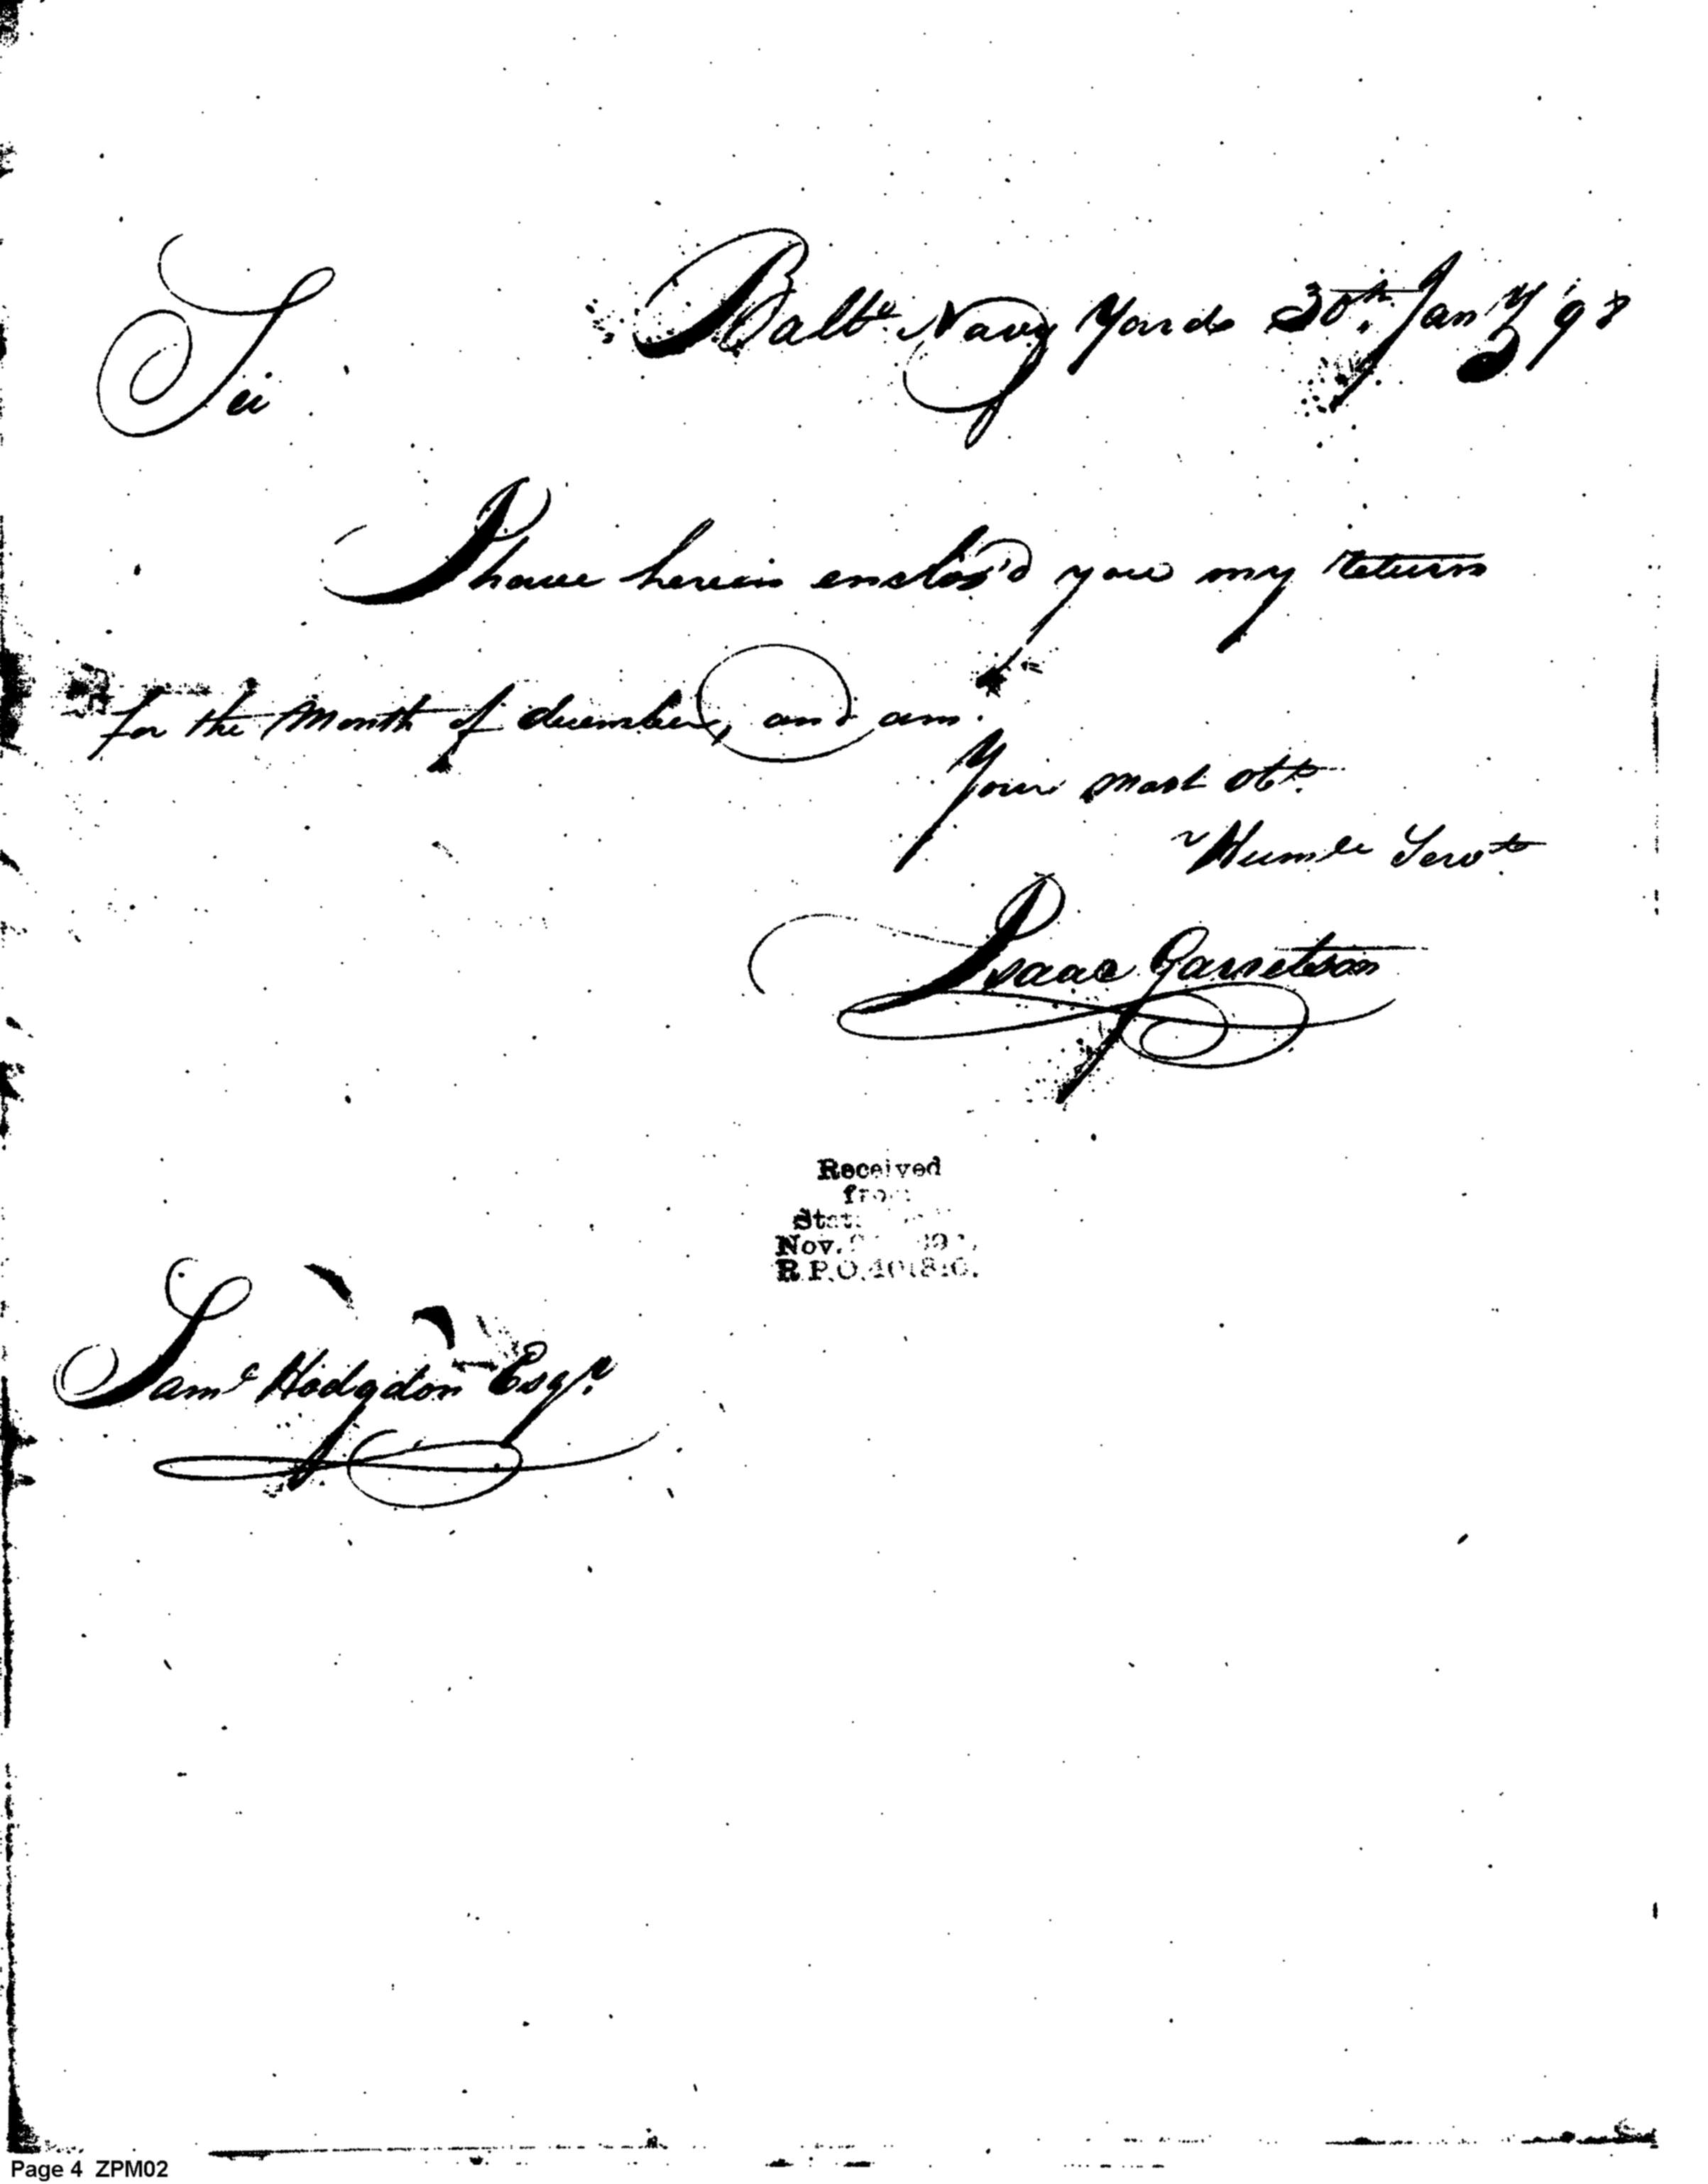 Balto Navy Yard 30th Jany '98
Sir
I have herein enclos'd you my return
for the Month of december, and am
Your most Obt.
Humle Servt.
Isaac Garretson
Received
from
State
Nov.
R.P.O.
Saml Hodgdon Esqr.
Page 4 ZPM02